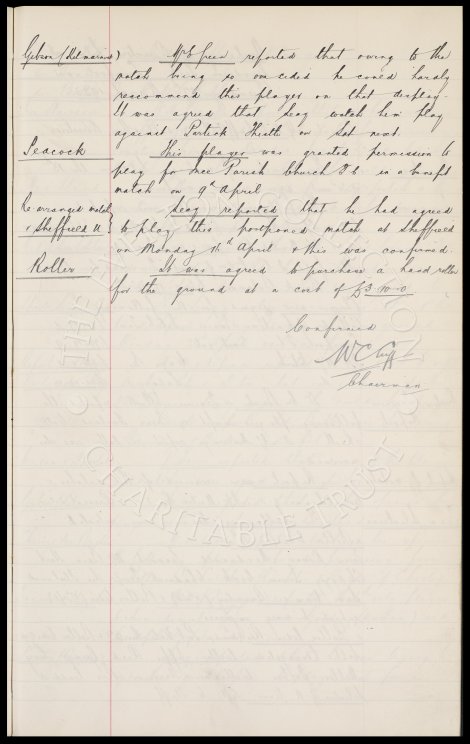 Gibson (Kilmarnock) Mr Green reported that owing to the
match being so one sided he could hardly
recommend this player on that display.
It was agreed that Secy watch him play
against Partick Thistle on Sat next
Peacock This player was granted permission to
play for Free Parish Church F.C. in a benefit
match on 9th April
Re arranged match Secy reported that he had agreed
v Sheffield U to play this postponed match at Sheffield
on Monday April & this was confirmed.
Roller It was agreed to purchase a hand roller
for the ground at a cost of £3 10-0
Confirmed
W C Cuff
Chairman
THE EVERTON COLLECTION
CHARITABLE TRUST